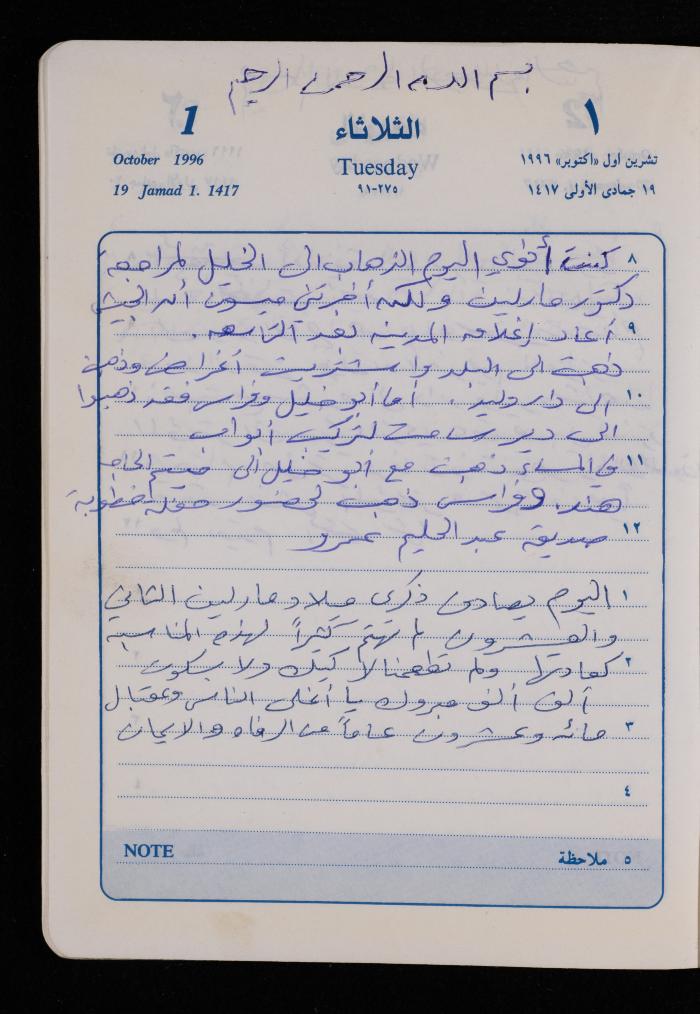 بسم الله الرحمن الرحيم
1 الثلاثاء ١
October 1996 Tuesday تشرين اول «اكتوبر» ١٩٩٦
19 Jamad 1. 1417 ٩١-٢٧٥ ١٩ جمادى الأولى ١٤١٧
٨ كنت أنوي اليوم الذهاب الى الخليل لمراجعة
دكتور مارلين ولكن أخبرتني ميسون أن الجيش
٩ أعاد إغلاق المدينة بعد التاسعة.
ذهبت الى البلد واشتريت أغراض وذهبت
١٠ الى دار وليد. أما أبو خليل وفراس فقد ذهبوا
الى دير سامت لتركيب أبواب
١١ في المساء ذهبت مع أبو خليل الى الحاجة
هند. وفراس ذهب لحضور حفلة خطوبة
١٢ صديقه عبد الحليم عمرو
١ اليوم يصادف ذكرى ميلاد مارلين الثاني
والعشرون لم تهتم كثيراً لهذه المناسبة
٢ كعادتها ولم تطعمنا لا كيك ولا بسكوت
ألف ألف مبروك يا أغلى الناس وعقبال
٣ مائة وعشرون عاماً من الرفاه والايمان
٤
NOTE ٥ ملاحظة